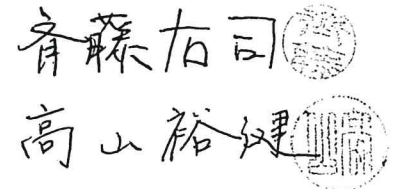 斉藤右司
高山裕健